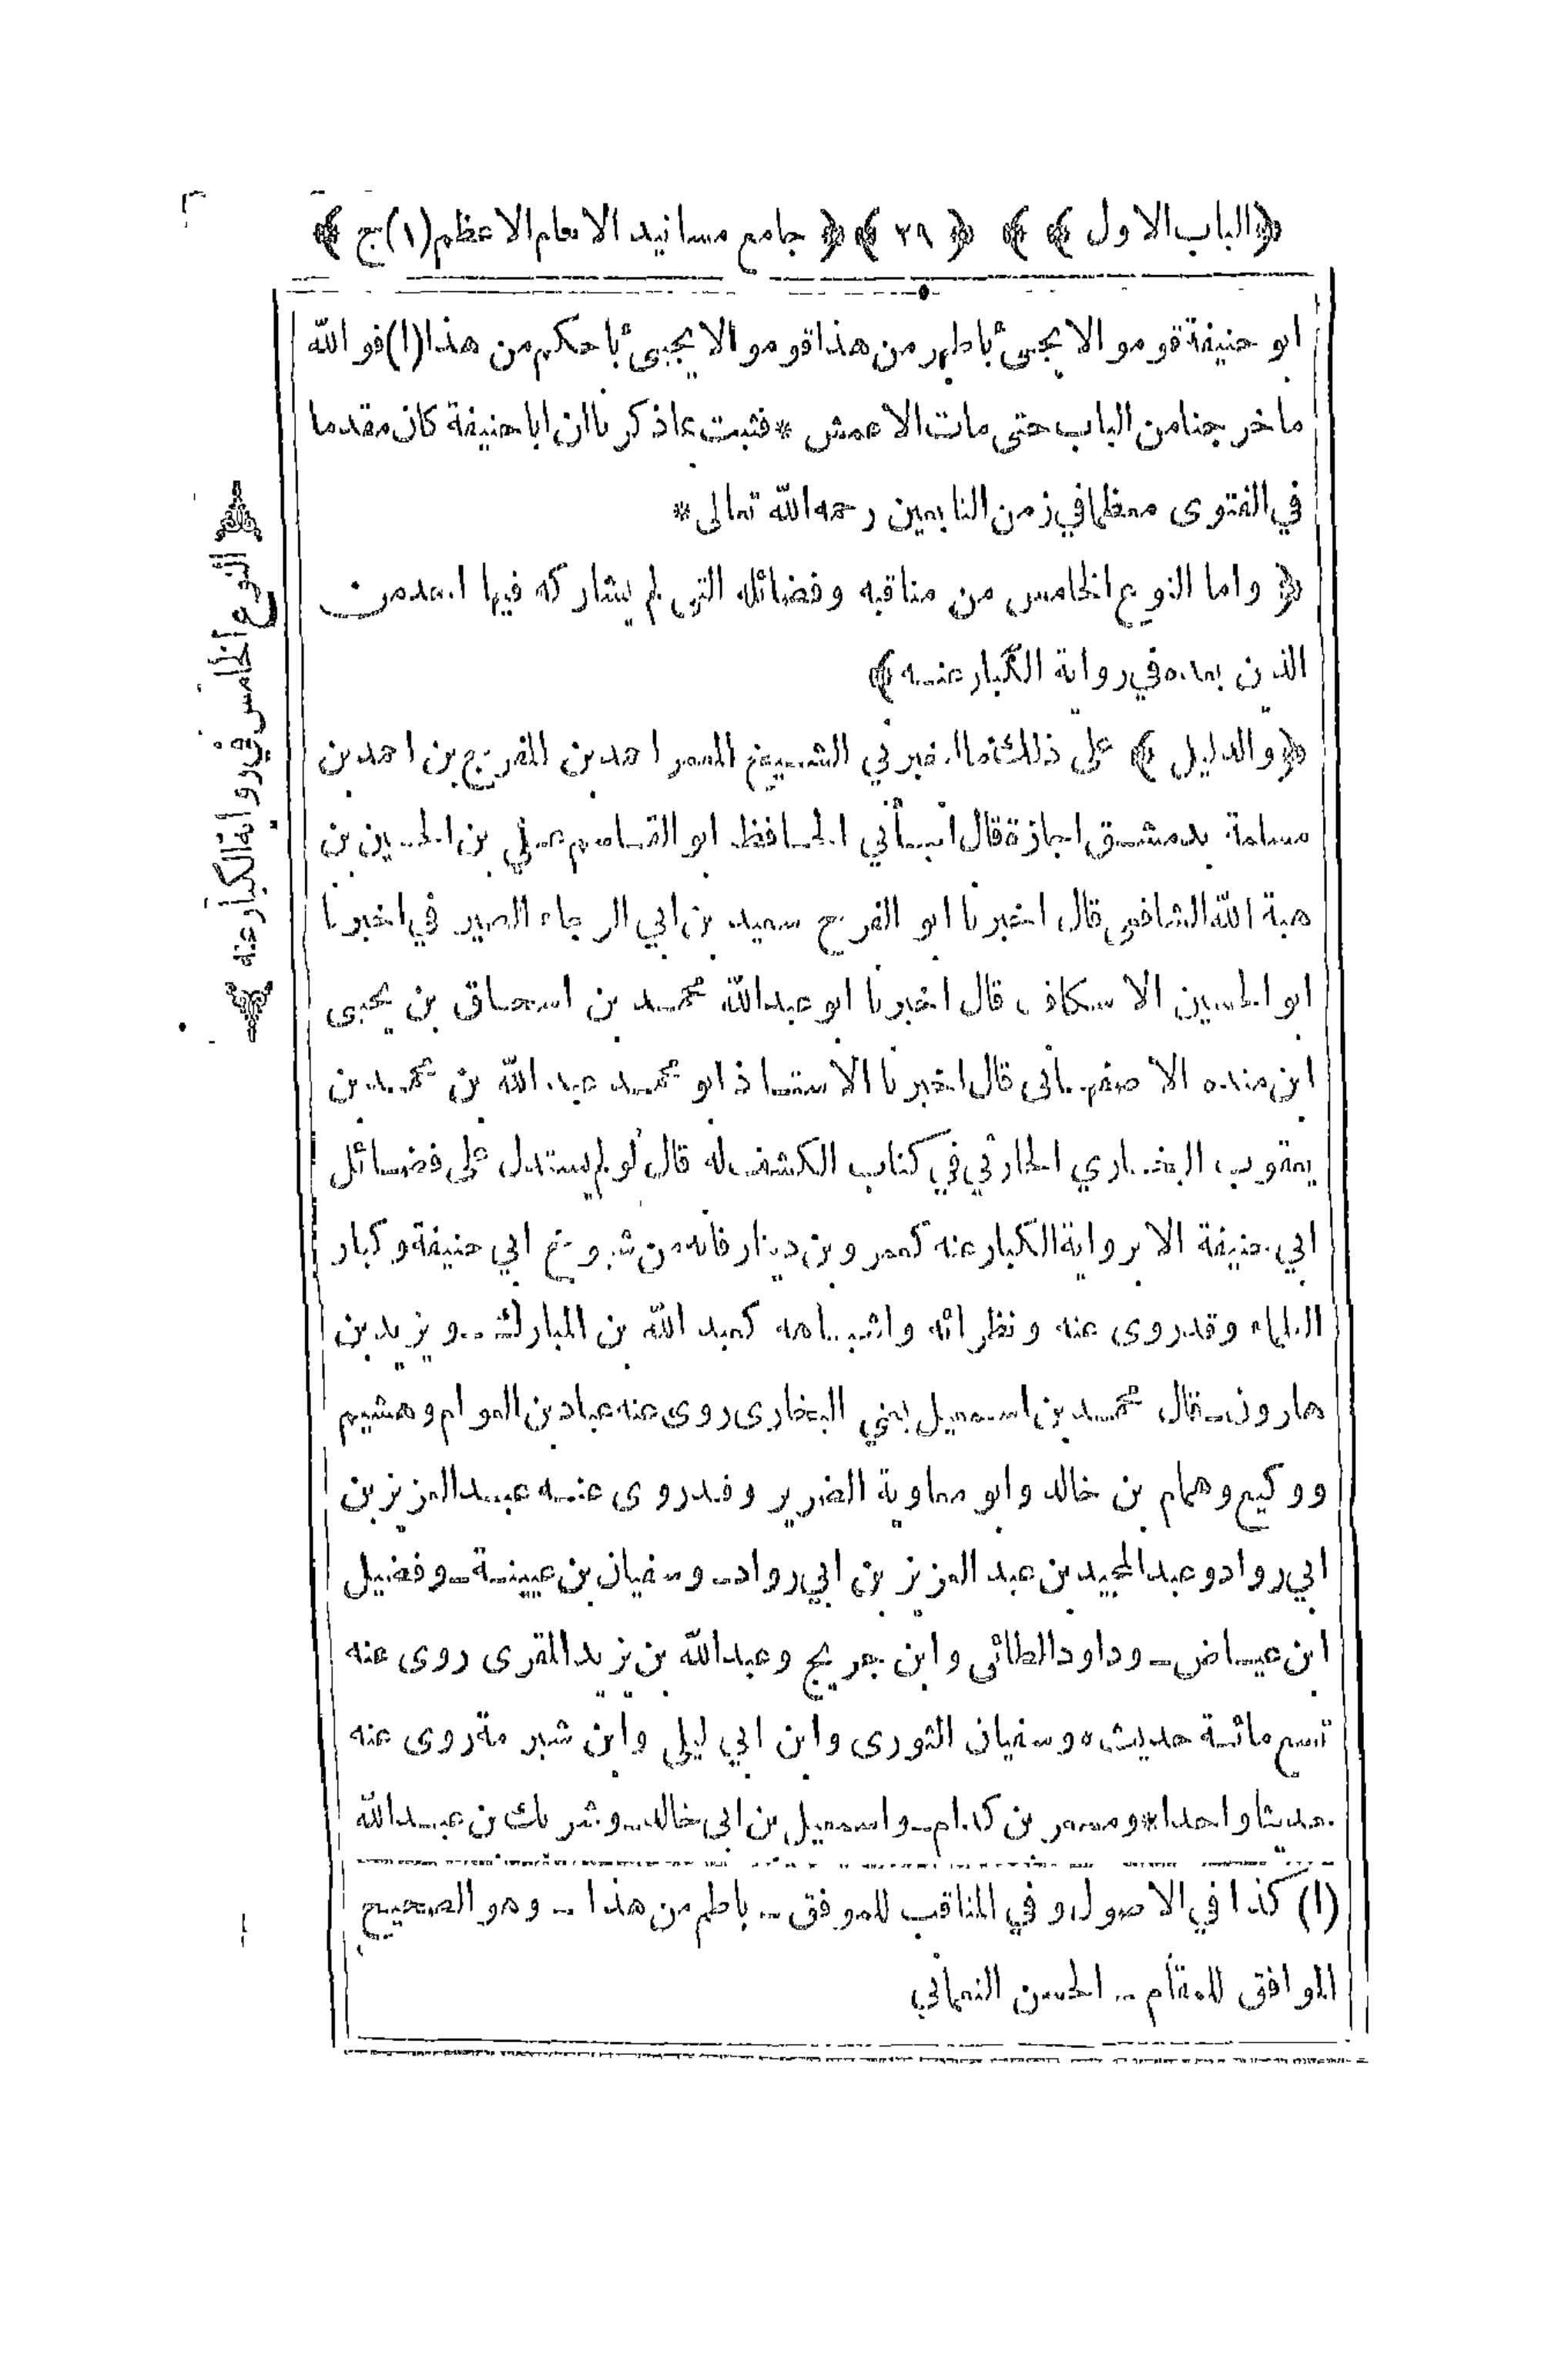 ﴿الباب الاول﴾ ﴾ ﴿ ٢٩ ﴾ ﴿ جامع مسانيد الامام الاعظم(١)ج ﴾
ابو حنيفة قوموا لا يجيئ باطهر من هذا قوموا لا يجيئ باحكم من هذا(١)فوالله
ما خرجنا من الباب حتى مات الاعمش * فثبت بما ذكرنا ان ابا حنيفة كان مقدما
في الفتوى معظما في زمن التابعين رحمه الله تعالى *
﴿ واما النوع الخامس من مناقبه وفضائله التي لم يشاركه فيها احد من
الذين بعده في رواية الكبار عنه ﴾
﴿والدليل ﴾ على ذلك ما اخبرني الشيخ المعمر احمد بن المفرج بن احمد بن
مسلمة بدمشق اجازة قال انبأني الحافظ ابو القاسم علي بن الحسين بن
هبة الله الشافعي قال اخبرنا ابو الفرج سعيد بن ابي الرجاء الصيرفي اخبرنا
ابو الحسين الاسكاف قال اخبرنا ابو عبدالله محمد بن اسحاق بن يحيى
ابن منده الاصفهانى قال اخبرنا الاستاذ ابو محمد عبد الله بن محمد بن
يعقوب البخاري الحارثي في كتاب الكشف له قال لو لم يستدل على فضائل
ابي حنيفة الا برواية الكبار عنه كعمرو بن دينار فانه من شيوخ ابي حنيفة وكبار
العلماء وقد روى عنه ونظرائه واشباهه كعبد الله بن المبارك ـ ويزيد بن
هارون ـ قال محمد بن اسمعيل يعني البخارى روى عنه عباد بن العوام وهشيم
ووكيع وهمام بن خالد وابو معاوية الضرير وقد روى عنه عبد العزيز بن
ابي رواد وعبد المجيد بن عبد العزيز بن ابي رواد ـ وسفيان بن عيينة ـ وفضيل
ابن عياض ـ وداود الطائى وابن جريج وعبدالله بن يزيد المقرى روى عنه
تسع مائة حديث ٥ وسفيان الثورى وابن ابي ليلى وابن شبرمة روى عنه
حديثا واحدا * ومسعر بن كدام ـ واسمعيل بن ابى خالد ـ وشريك بن عبدالله
(١) كذا في الاصول وفي المناقب للموفق ـ باطم من هذا ـ وهو الصحيح
الموافق للمقام ـ الحسن النعماني
﴿ النوع الخامس في رواية الكبار عنه ﴾